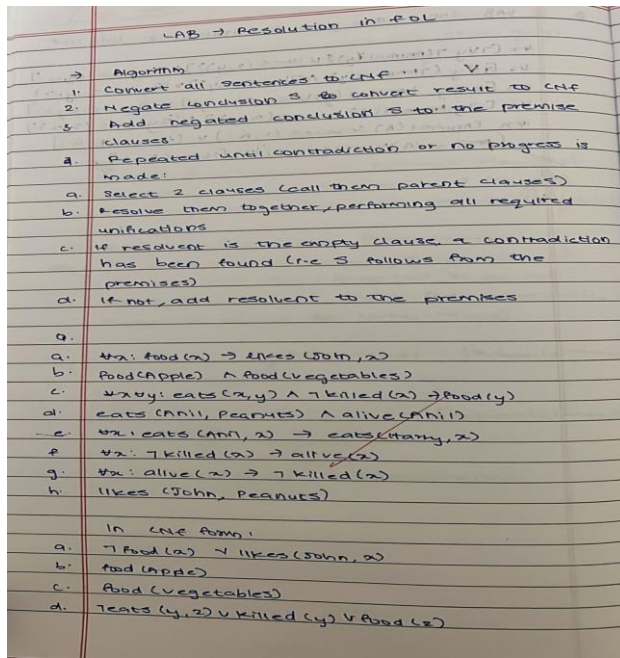 LAB → Resolution in FOL
→ Algorithm
1. Convert all sentences to CNF
2. Negate conclusion S & convert result to CNF
3. Add negated conclusion S to the premise
clauses
4. Repeated until contradiction or no progress is
made:
a. Select 2 clauses (call them parent clauses)
b. Resolve them together, performing all required
unifications
c. If resolvent is the empty clause, a contradiction
has been found (i.e S follows from the
premises)
d. If not, add resolvent to the premises
Q.
a. ∀x: food(x) → likes (John, x)
b. food(Apple) ∧ food(vegetables)
c. ∀x∀y: eats(x,y) ∧ ¬killed(x) → food(y)
d. eats (Anil, Peanuts) ∧ alive(Anil)
e. ∀x: eats (Anil, x) → eats(Harry, x)
f. ∀x: ¬killed(x) → alive(x)
g. ∀x: alive(x) → ¬killed(x)
h. likes (John, Peanuts)
In CNF form:
a. ¬food(x) ∨ likes(John, x)
b. food (Apple)
c. food (vegetables)
d. ¬eats (y,z) ∨ killed (y) ∨ food (z)